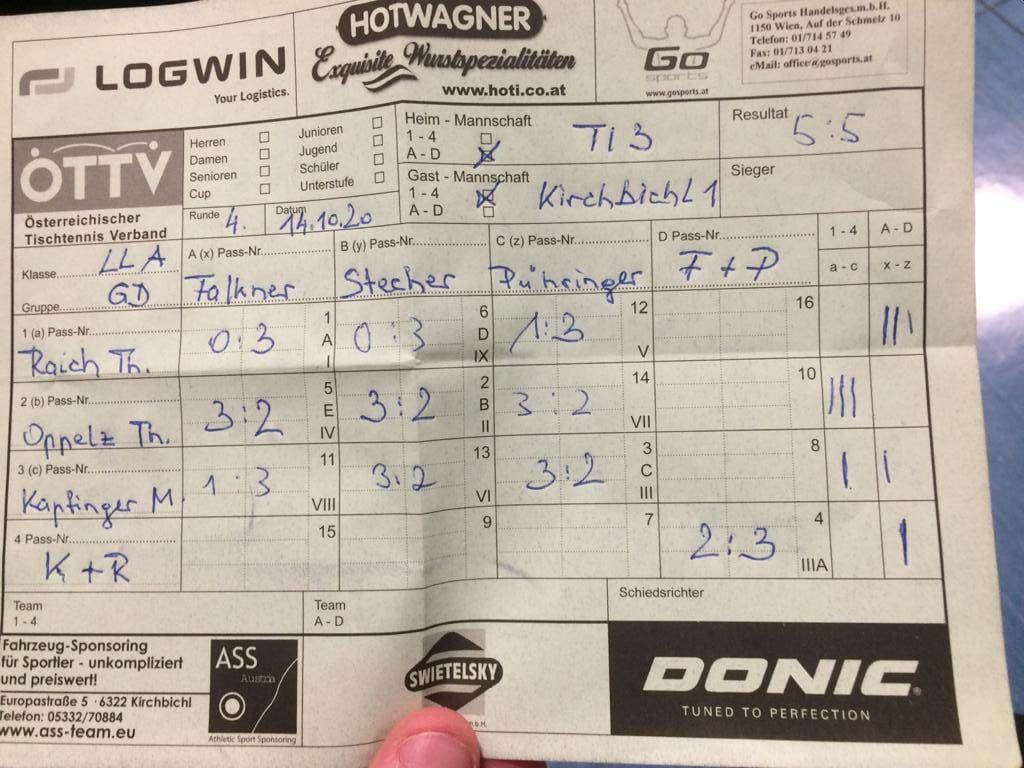 LOGWIN
Your Logistics.
HOTWAGNER
Exquisite Wurstspezialitäten
www.hoti.co.at
Go
sports
www.gosports.at
Go Sports Handelsges.m.b.H.
1150 Wien, Auf der Schmelz 10
Telefon: 01/714 57 49
Fax: 01/713 04 21
eMail: office@gosports.at
ÖTTV
Österreichischer
Tischtennis Verband
Herren
Damen
Senioren
Cup
Junioren
Jugend
Schüler
Unterstufe
Runde 4.
Datum 14.10.20
Heim - Mannschaft
1 - 4
A - D
TI 3
Gast - Mannschaft
1 - 4
A - D
Kirchbichl 1
Resultat 5:5
Sieger
Klasse LLA
Gruppe GD
A (x) Pass-Nr.
Falkner
B (y) Pass-Nr.
Stecher
C (z) Pass-Nr.
Pühringer
D Pass-Nr.
F + P
1 - 4 A - D
a - c x - z
1 (a) Pass-Nr.
Raich Th.
0:3 1 A I
0:3 6 D IX
1:3 12 V
16
|||
2 (b) Pass-Nr.
Oppelz Th.
3:2 5 E IV
3:2 2 B II
3:2 14 VII
10
|||
3 (c) Pass-Nr.
Kapfinger M.
1:3 11 VIII
3:2 13 VI
3:2 3 C III
8
| |
4 Pass-Nr.
K + R
15
9
7
2:3 4 IIIA
|
Team
1 - 4
Team
A - D
Schiedsrichter
Fahrzeug-Sponsoring
für Sportler - unkompliziert
und preiswert!
Europastraße 5 · 6322 Kirchbichl
Telefon: 05332/70884
www.ass-team.eu
ASS
Austria
Athletic Sport Sponsoring
SWIETELSKY
m b.H.
DONIC®
TUNED TO PERFECTION